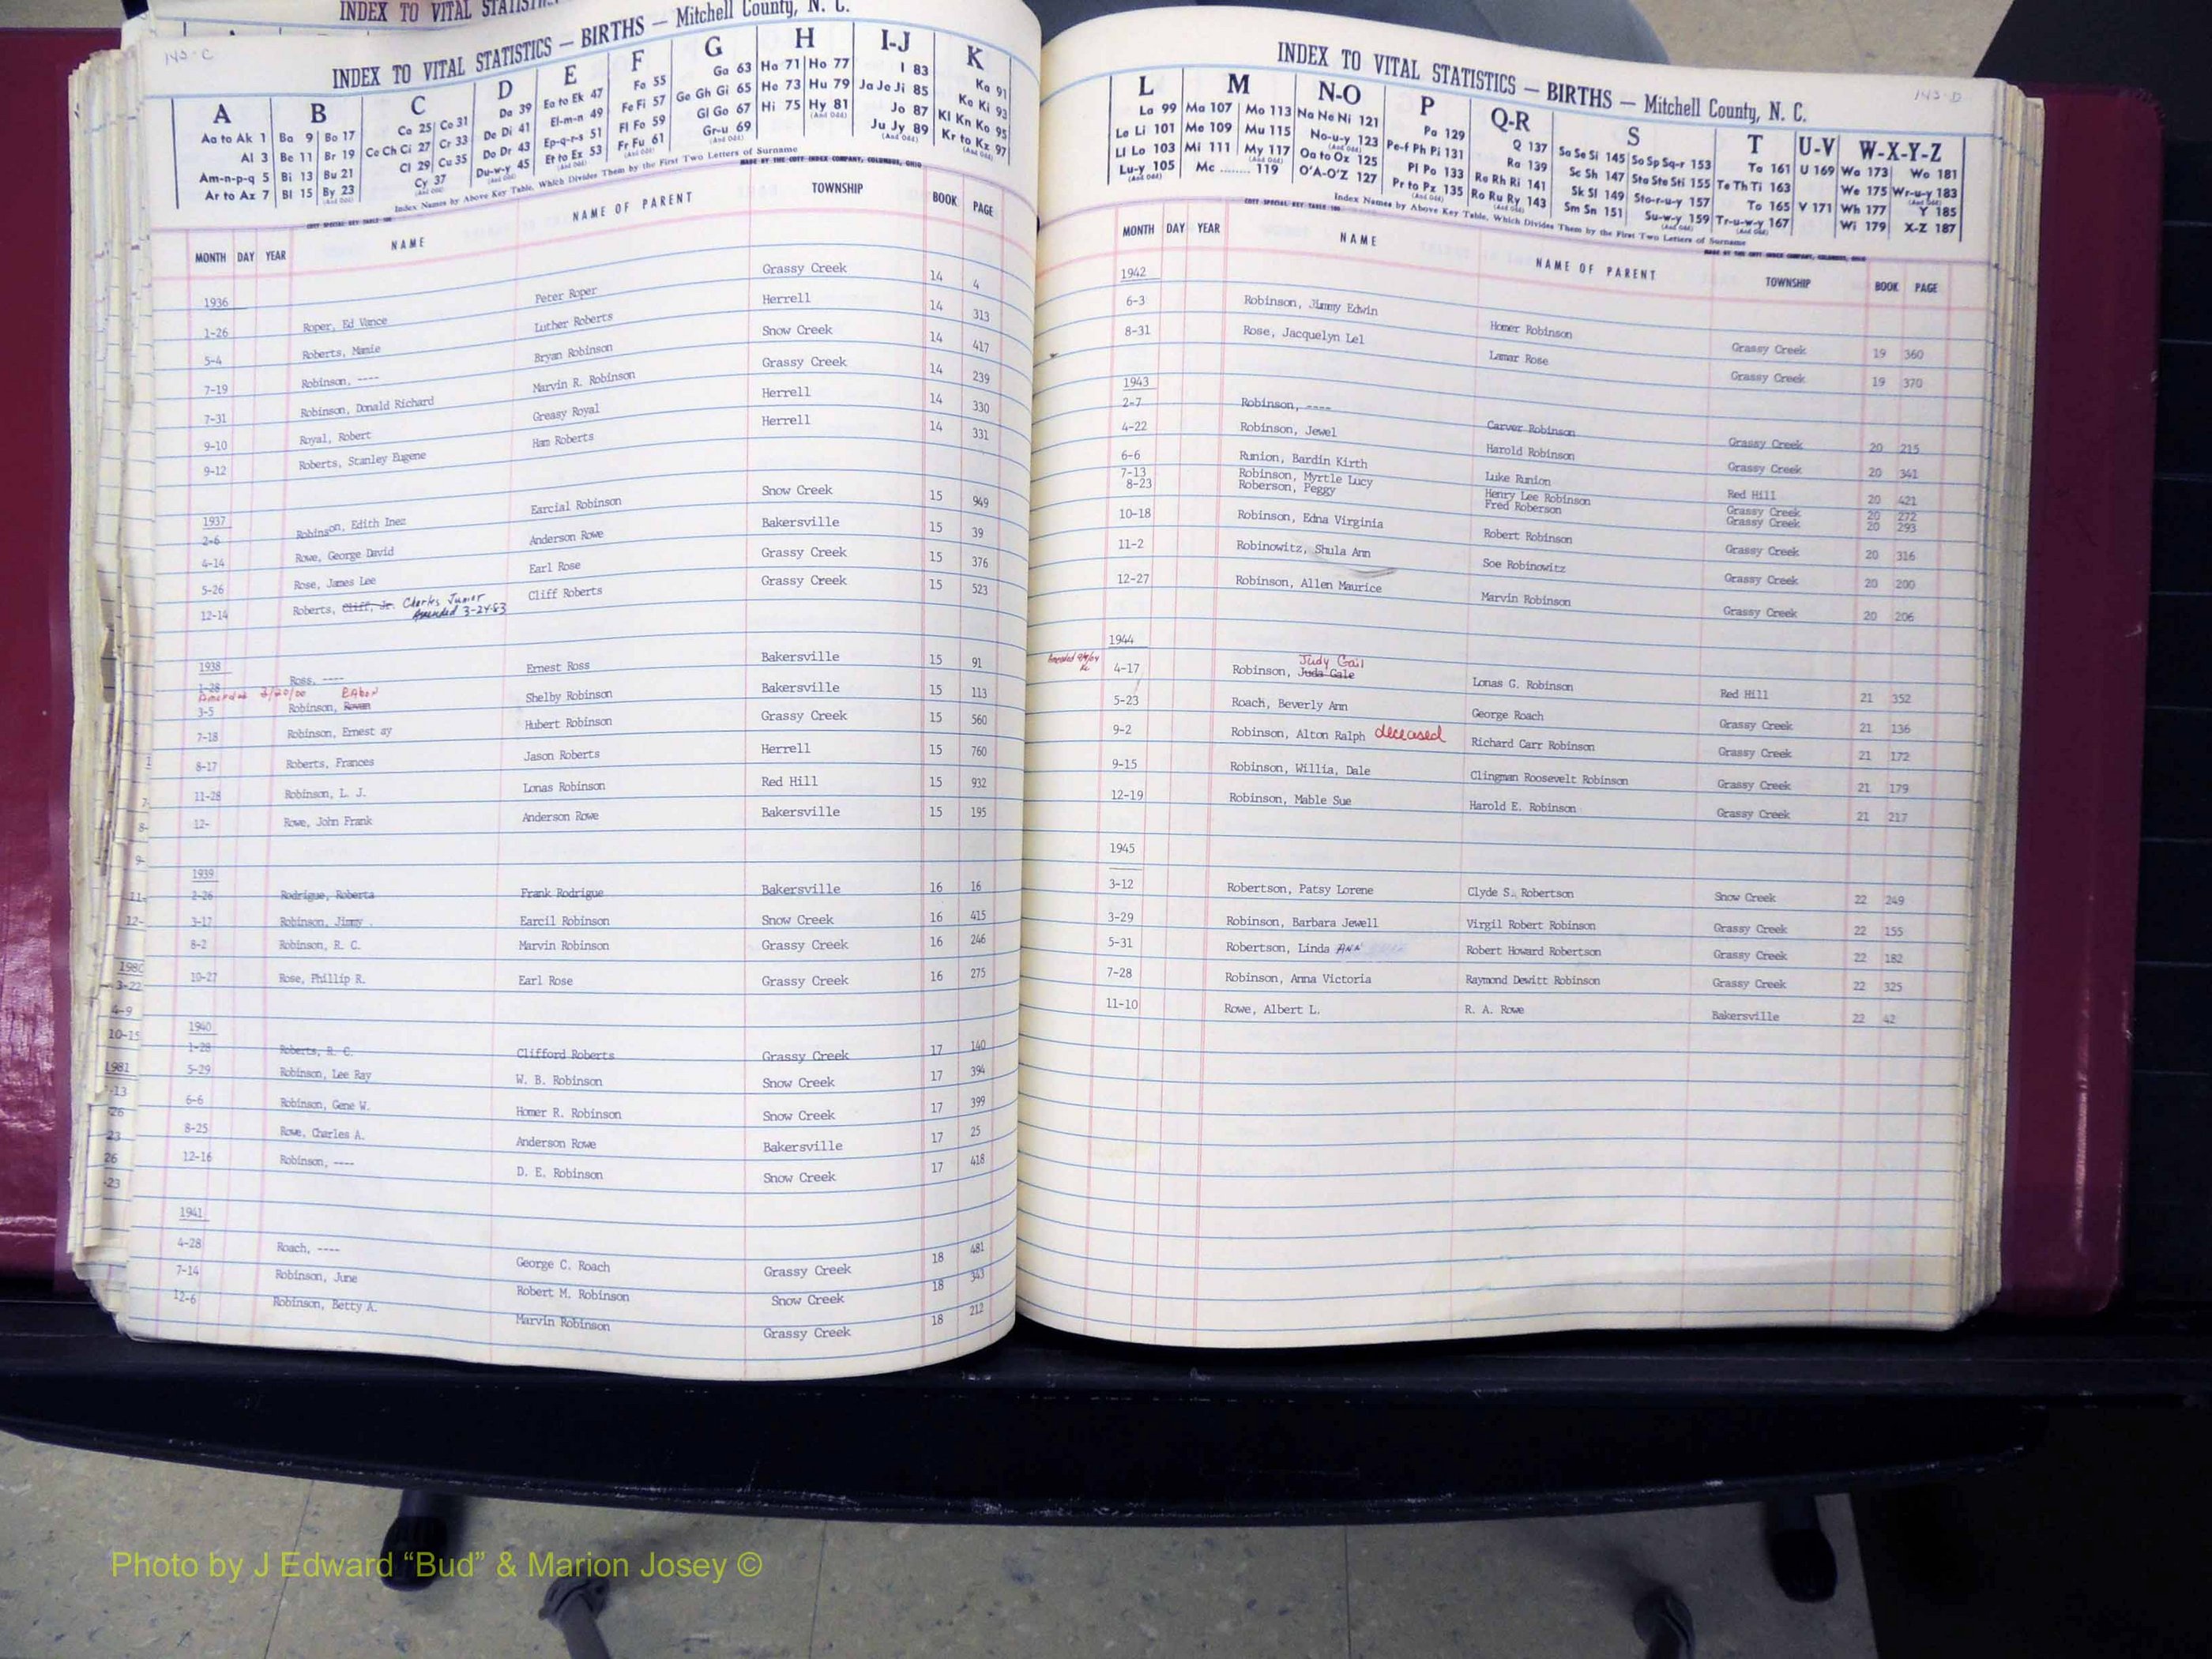 INDEX TO VITAL STATISTI
143-C
INDEX TO VITAL STATISTICS — BIRTHS — Mitchell County, N. C.
A B C D E F G H I-J K
Aa to Ak 1 Ba 9 Bo 17 Ca 25 Co 31 Da 39 Ea to Ek 47 Fa 55 Ga 63 Ha 71 Ho 77 I 83 Ka 91
Al 3 Be 11 Br 19 Ce Ch Ci 27 Cr 33 De Di 41 El-m-n 49 Fe Fi 57 Ge Gh Gi 65 He 73 Hu 79 Ja Je Ji 85 Ke Ki 93
Am-n-p-q 5 Bi 13 Bu 21 Cl 29 Cu 35 Do Dr 43 Ep-q-r-s 51 Fl Fo 59 Gl Go 67 Hi 75 Hy 81 Jo 87 Kl Kn Ko 95
Ar to Az 7 Bl 15 By 23 Cy 37 Du-w-y 45 Et to Ez 53 Fr Fu 61 Gr-u 69 Ju Jy 89 Kr to Kz 97
Index Names by Above Key Table, Which Divides Them by the First Two Letters of Surname
MADE BY THE COTT INDEX COMPANY, COLUMBUS, OHIO
MONTH DAY YEAR NAME NAME OF PARENT TOWNSHIP BOOK PAGE
1936
1-26 Roper, Ed Vance Peter Roper Grassy Creek 14 4
5-4 Roberts, Mamie Luther Roberts Herrell 14 313
7-19 Robinson, ---- Bryan Robinson Snow Creek 14 417
7-31 Robinson, Donald Richard Marvin R. Robinson Grassy Creek 14 239
9-10 Royal, Robert Greasy Royal Herrell 14 330
9-12 Roberts, Stanley Eugene Ham Roberts Herrell 14 331
1937
2-6 Robinson, Edith Inez Earcial Robinson Snow Creek 15 949
4-14 Rowe, George David Anderson Rowe Bakersville 15 39
5-26 Rose, James Lee Earl Rose Grassy Creek 15 376
12-14 Roberts, Cliff, Jr. Charles Junior Cliff Roberts Grassy Creek 15 523
Amended 3-24-83
1938
1-28 Ross, ---- Ernest Ross Bakersville 15 91
Amended 2/20/00 EAbon
3-5 Robinson, Rovan Shelby Robinson Bakersville 15 113
7-18 Robinson, Ernest ay Hubert Robinson Grassy Creek 15 560
8-17 Roberts, Frances Jason Roberts Herrell 15 760
11-28 Robinson, L. J. Lonas Robinson Red Hill 15 932
12- Rowe, John Frank Anderson Rowe Bakersville 15 195
1939
2-26 Rodrigue, Roberta Frank Rodrigue Bakersville 16 16
3-17 Robinson, Jimmy . Earcil Robinson Snow Creek 16 415
8-2 Robinson, R. C. Marvin Robinson Grassy Creek 16 246
10-27 Rose, Phillip R. Earl Rose Grassy Creek 16 275
1940
1-28 Roberts, R. C. Clifford Roberts Grassy Creek 17 140
5-29 Robinson, Lee Ray W. B. Robinson Snow Creek 17 394
6-6 Robinson, Gene W. Homer R. Robinson Snow Creek 17 399
8-25 Rowe, Charles A. Anderson Rowe Bakersville 17 25
12-16 Robinson, ---- D. E. Robinson Snow Creek 17 418
1941
4-28 Roach, ---- George C. Roach Grassy Creek 18 481
7-14 Robinson, June Robert M. Robinson Snow Creek 18 343
12-6 Robinson, Betty A. Marvin Robinson Grassy Creek 18 212
7-
8-
9-
11-
12-
1980
3-22
4-9
10-15
1981
-13
26
23
26
-23
143-D
INDEX TO VITAL STATISTICS — BIRTHS — Mitchell County, N. C.
L M N-O P Q-R S T U-V W-X-Y-Z
La 99 Ma 107 Mo 113 Na Ne Ni 121 Pa 129 Q 137 Sa Se Si 145 So Sp Sq-r 153 Ta 161 U 169 Wa 173 Wo 181
Le Li 101 Me 109 Mu 115 No-u-y 123 Pe-f Ph Pi 131 Ra 139 Sc Sh 147 Sta Ste Sti 155 Te Th Ti 163 We 175 Wr-u-y 183
Ll Lo 103 Mi 111 My 117 Oa to Oz 125 Pl Po 133 Re Rh Ri 141 Sk Sl 149 Sto-r-u-y 157 To 165 V 171 Wh 177 Y 185
Lu-y 105 Mc ........ 119 O'A-O'Z 127 Pr to Pz 135 Ro Ru Ry 143 Sm Sn 151 Su-w-y 159 Tr-u-w-y 167 Wi 179 X-Z 187
Index Names by Above Key Table, Which Divides Them by the First Two Letters of Surname
MADE BY THE COTT INDEX COMPANY, COLUMBUS, OHIO
MONTH DAY YEAR NAME NAME OF PARENT TOWNSHIP BOOK PAGE
1942
6-3 Robinson, Jimmy Edwin Homer Robinson Grassy Creek 19 360
8-31 Rose, Jacquelyn Lel Lamar Rose Grassy Creek 19 370
1943
2-7 Robinson, ---- Carver Robinson Grassy Creek 20 215
4-22 Robinson, Jewel Harold Robinson Grassy Creek 20 341
6-6 Runion, Bardin Kirth Luke Runion Red Hill 20 421
7-13 Robinson, Myrtle Lucy Henry Lee Robinson Grassy Creek 20 272
8-23 Roberson, Peggy Fred Roberson Grassy Creek 20 293
10-18 Robinson, Edna Virginia Robert Robinson Grassy Creek 20 316
11-2 Robinowitz, Shula Ann Soe Robinowitz Grassy Creek 20 200
12-27 Robinson, Allen Maurice Marvin Robinson Grassy Creek 20 206
1944
Amended Judy Gail
4-17 Robinson, Juda Gale Lonas G. Robinson Red Hill 21 352
5-23 Roach, Beverly Ann George Roach Grassy Creek 21 136
9-2 Robinson, Alton Ralph deceased Richard Carr Robinson Grassy Creek 21 172
9-15 Robinson, Willia, Dale Clingman Roosevelt Robinson Grassy Creek 21 179
12-19 Robinson, Mable Sue Harold E. Robinson Grassy Creek 21 217
1945
3-12 Robertson, Patsy Lorene Clyde S. Robertson Snow Creek 22 249
3-29 Robinson, Barbara Jewell Virgil Robert Robinson Grassy Creek 22 155
5-31 Robertson, Linda ANN Robert Howard Robertson Grassy Creek 22 182
7-28 Robinson, Anna Victoria Raymond Dewitt Robinson Grassy Creek 22 325
11-10 Rowe, Albert L. R. A. Rowe Bakersville 22 42
Photo by J Edward “Bud” & Marion Josey ©